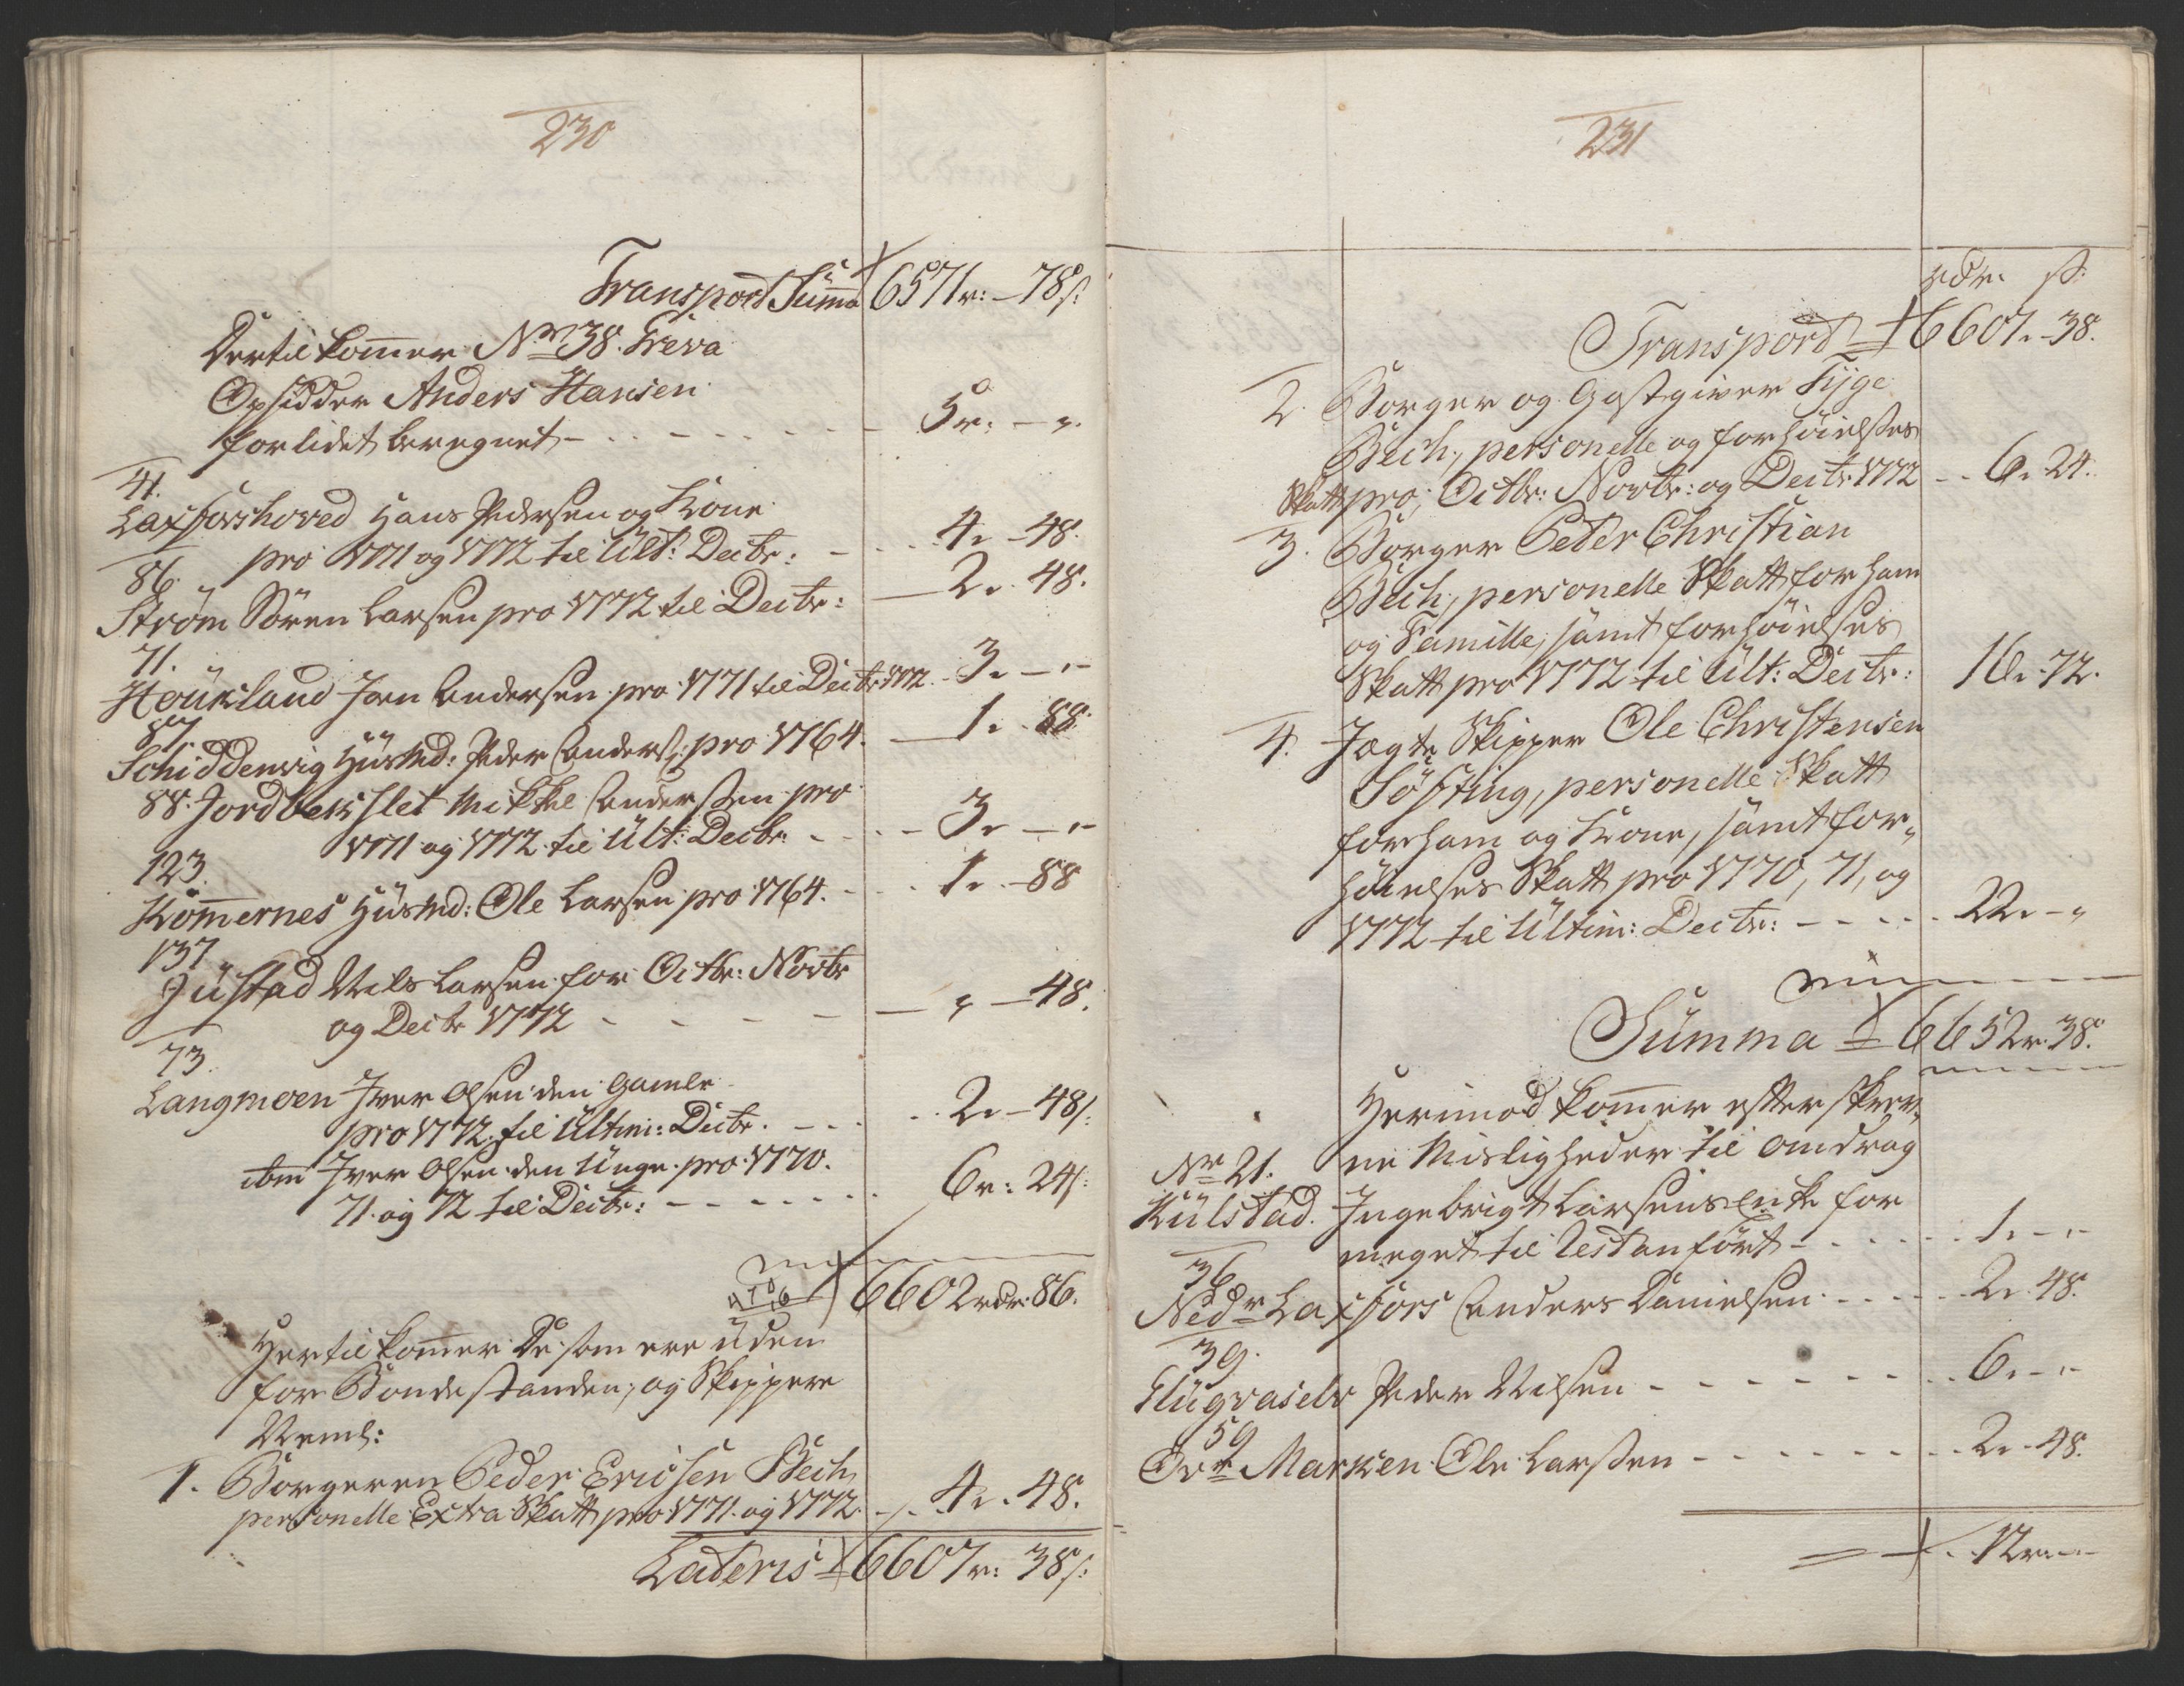 230
Transport Summa 6571r: - 78s:
Dertil kommer Nr 38. Treva
Opsidder Anders Hansen
for lidet beregnet - - - - - 5r: - "
41.
Laxforshoved Hans Pedersen og Kone
pro 1771 og 1772 til Ult: Decbr: - - 4. - 48.
86.
Strøm Sören Larsen pro 1772 til Decbr: - 2. 48.
71.
Houkland Joen Andersen pro 1771 til Decbr 1772. - 3. - " -
87
Schiddenvig Huusmd: Peder Anders: pro 1764. - 1. 88.
88. Jordbekslet Mikkel Andersen pro
1771 og 1772 til Ult: Decbr. - - 3. - " -
123.
Kommernes Huusmd: Ole Larsen pro 1764. - - 1. - 88
137.
Justad Nils Larsen for Octbr: Novbr
og Decbr 1772 - - - - - " - 48.
73.
Langmoen Iver Olsen den Gamle
pro 1772 til Ultim: Decbr. - - - 2. - 48s:
ibm Iver Olsen den Unge pro 1770.
71. og 72 til Decbr: - - - - - 6r: 24s:
6602rdr: 86.
Hertil kommer De som ere uden
for Bondestanden, og Skippere
Neml:
1. Borgeren Peder Ericsen Bech
personelle Extra Skatt pro 1771. og 1772. - 4. 48.
Lateris 6607r: 38s:
231
rdr. s:
Transport 6607. - 38.
2. Borger og Gastgiver Tyge
Bech, personelle og forhøielses
Skatt pro, Octbr: Novbr: og Decbr 1772 - - 6. 24.
3. Borger Peder Christian
Bech, personelle Skatt for ham
og Familie, samt forhøielses
Skatt pro 1772 til Ult: Decbr: 16. 72.
4. Jægte Skipper Ole Christensen
Søfting, personelle Skatt
for ham og Kone, samt for-
høielses Skatt pro 1770, 71, og
1772 til Ultim: Decbr: - - - - 22. - "
Summa 6652r. 38.
Herimod kommer efterskrev-
ne Misligheder til Andrag
Nr 21.
Kulstad. Ingebrigt Larsens Enke for
meget til Rest anført - - - - 1. - " -
36
Nedr Laxfors Anders Danielsen - - - - 2. 48.
39.
Peder Nilsen - - - - - - 6. - " -
59
Øvr Marken Ole Larsen - - - - - - 2. - 48.
12r. - " -